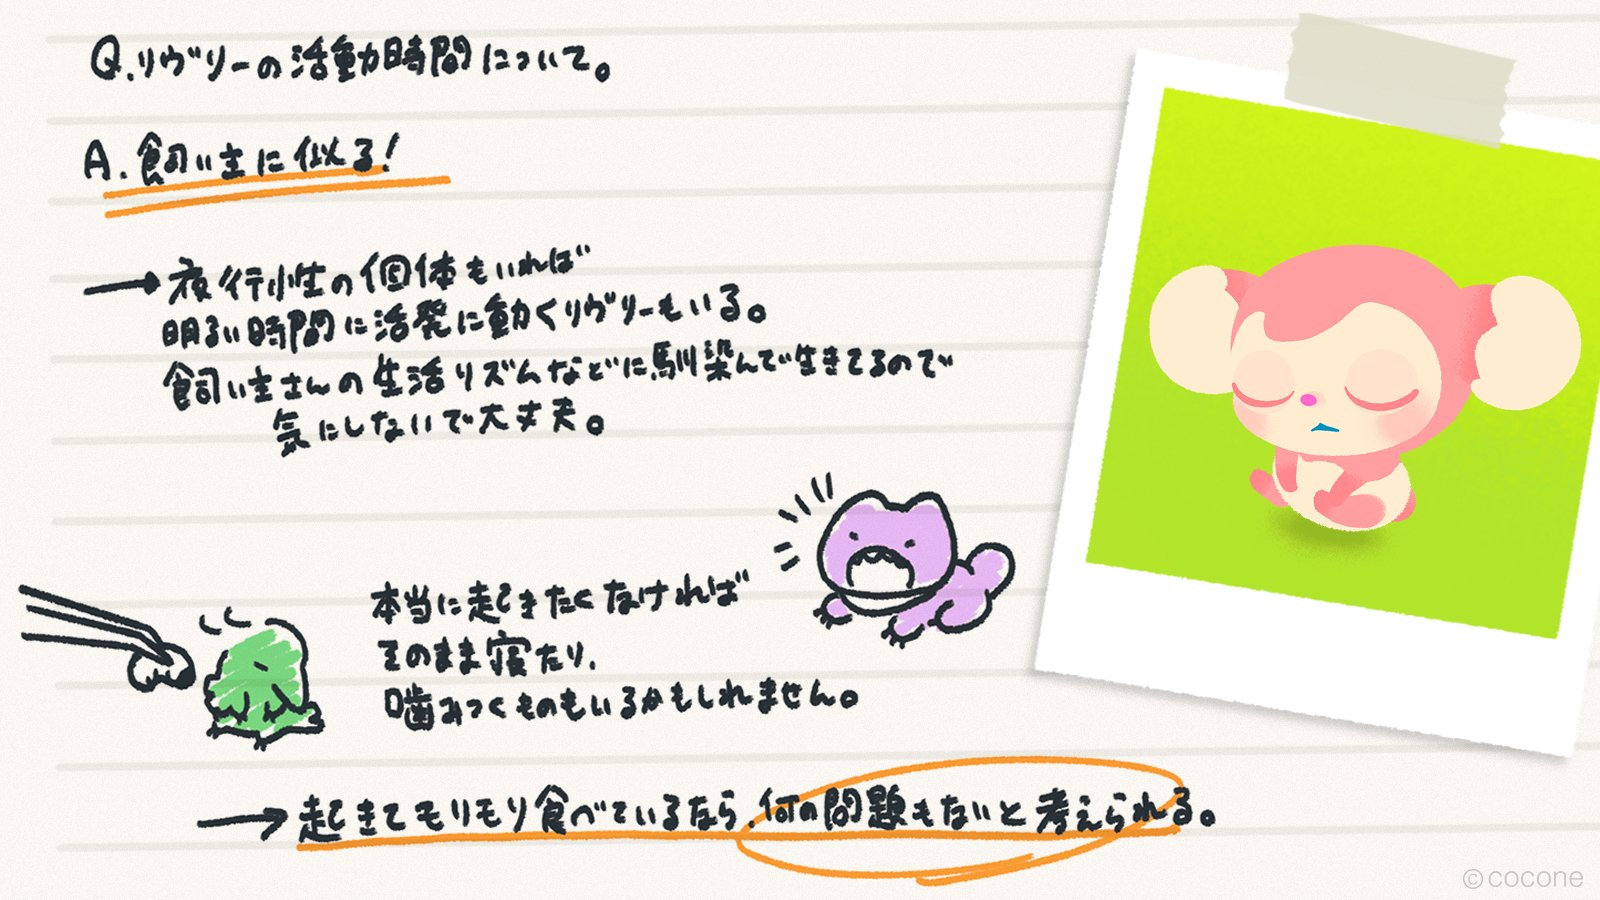 Q.リヴリーの活動時間について。
A.飼い主に似る!
→夜行性の個体もいれば
明るい時間に活発に動くリヴリーもいる。
飼い主さんの生活リズムなどに馴染んで生きてるので
気にしないで大丈夫。
本当に起きたくなければ
そのまま寝たり、
噛みつくものもいるかもしれません。
→起きてモリモリ食べているなら、何の問題もないと考えられる。
©cocone